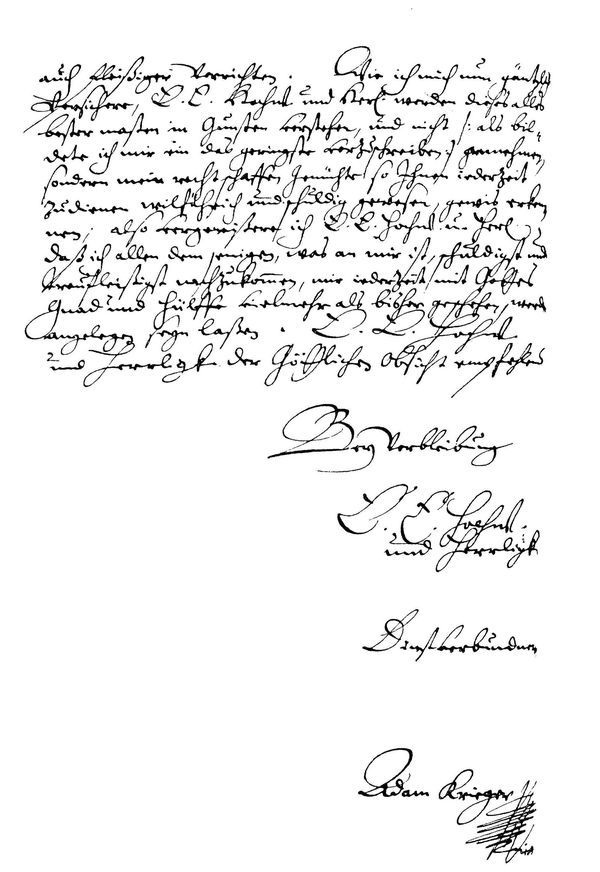 auch fleißiger Verrichten. Wie ich mich nun gäntzl.
versichere, E. E. Hochw und Herl: werden dieses alles
bester maßen in Gunsten verstehen, und nicht /: als bil-
dete ich mir ein das geringste vorzuschreiben :/ annehmen,
sondern mein rechtschaffen Gemüthe so Ihnen iederzeit
zu dienen willführich und schuldig gewesen, gewis erken
nen; also vergewißere ich E. E. Hochw. u. Herl
daß ich allen dem jenigen, was an mir ist, schuldigst und
treufleißigst nachzukommen, mir iederzeit mit Gottes
Gnad und Hülffe vielmehr als bisher geschehen, werde
angelegen seyn laßen. E. E. Hochw
und Herrligk der Göttlichen Obsicht empfehlend
Bey Verbleibung
E. E. Hochw.
und Herrligk
Dienstverbundner
Adam Krieger